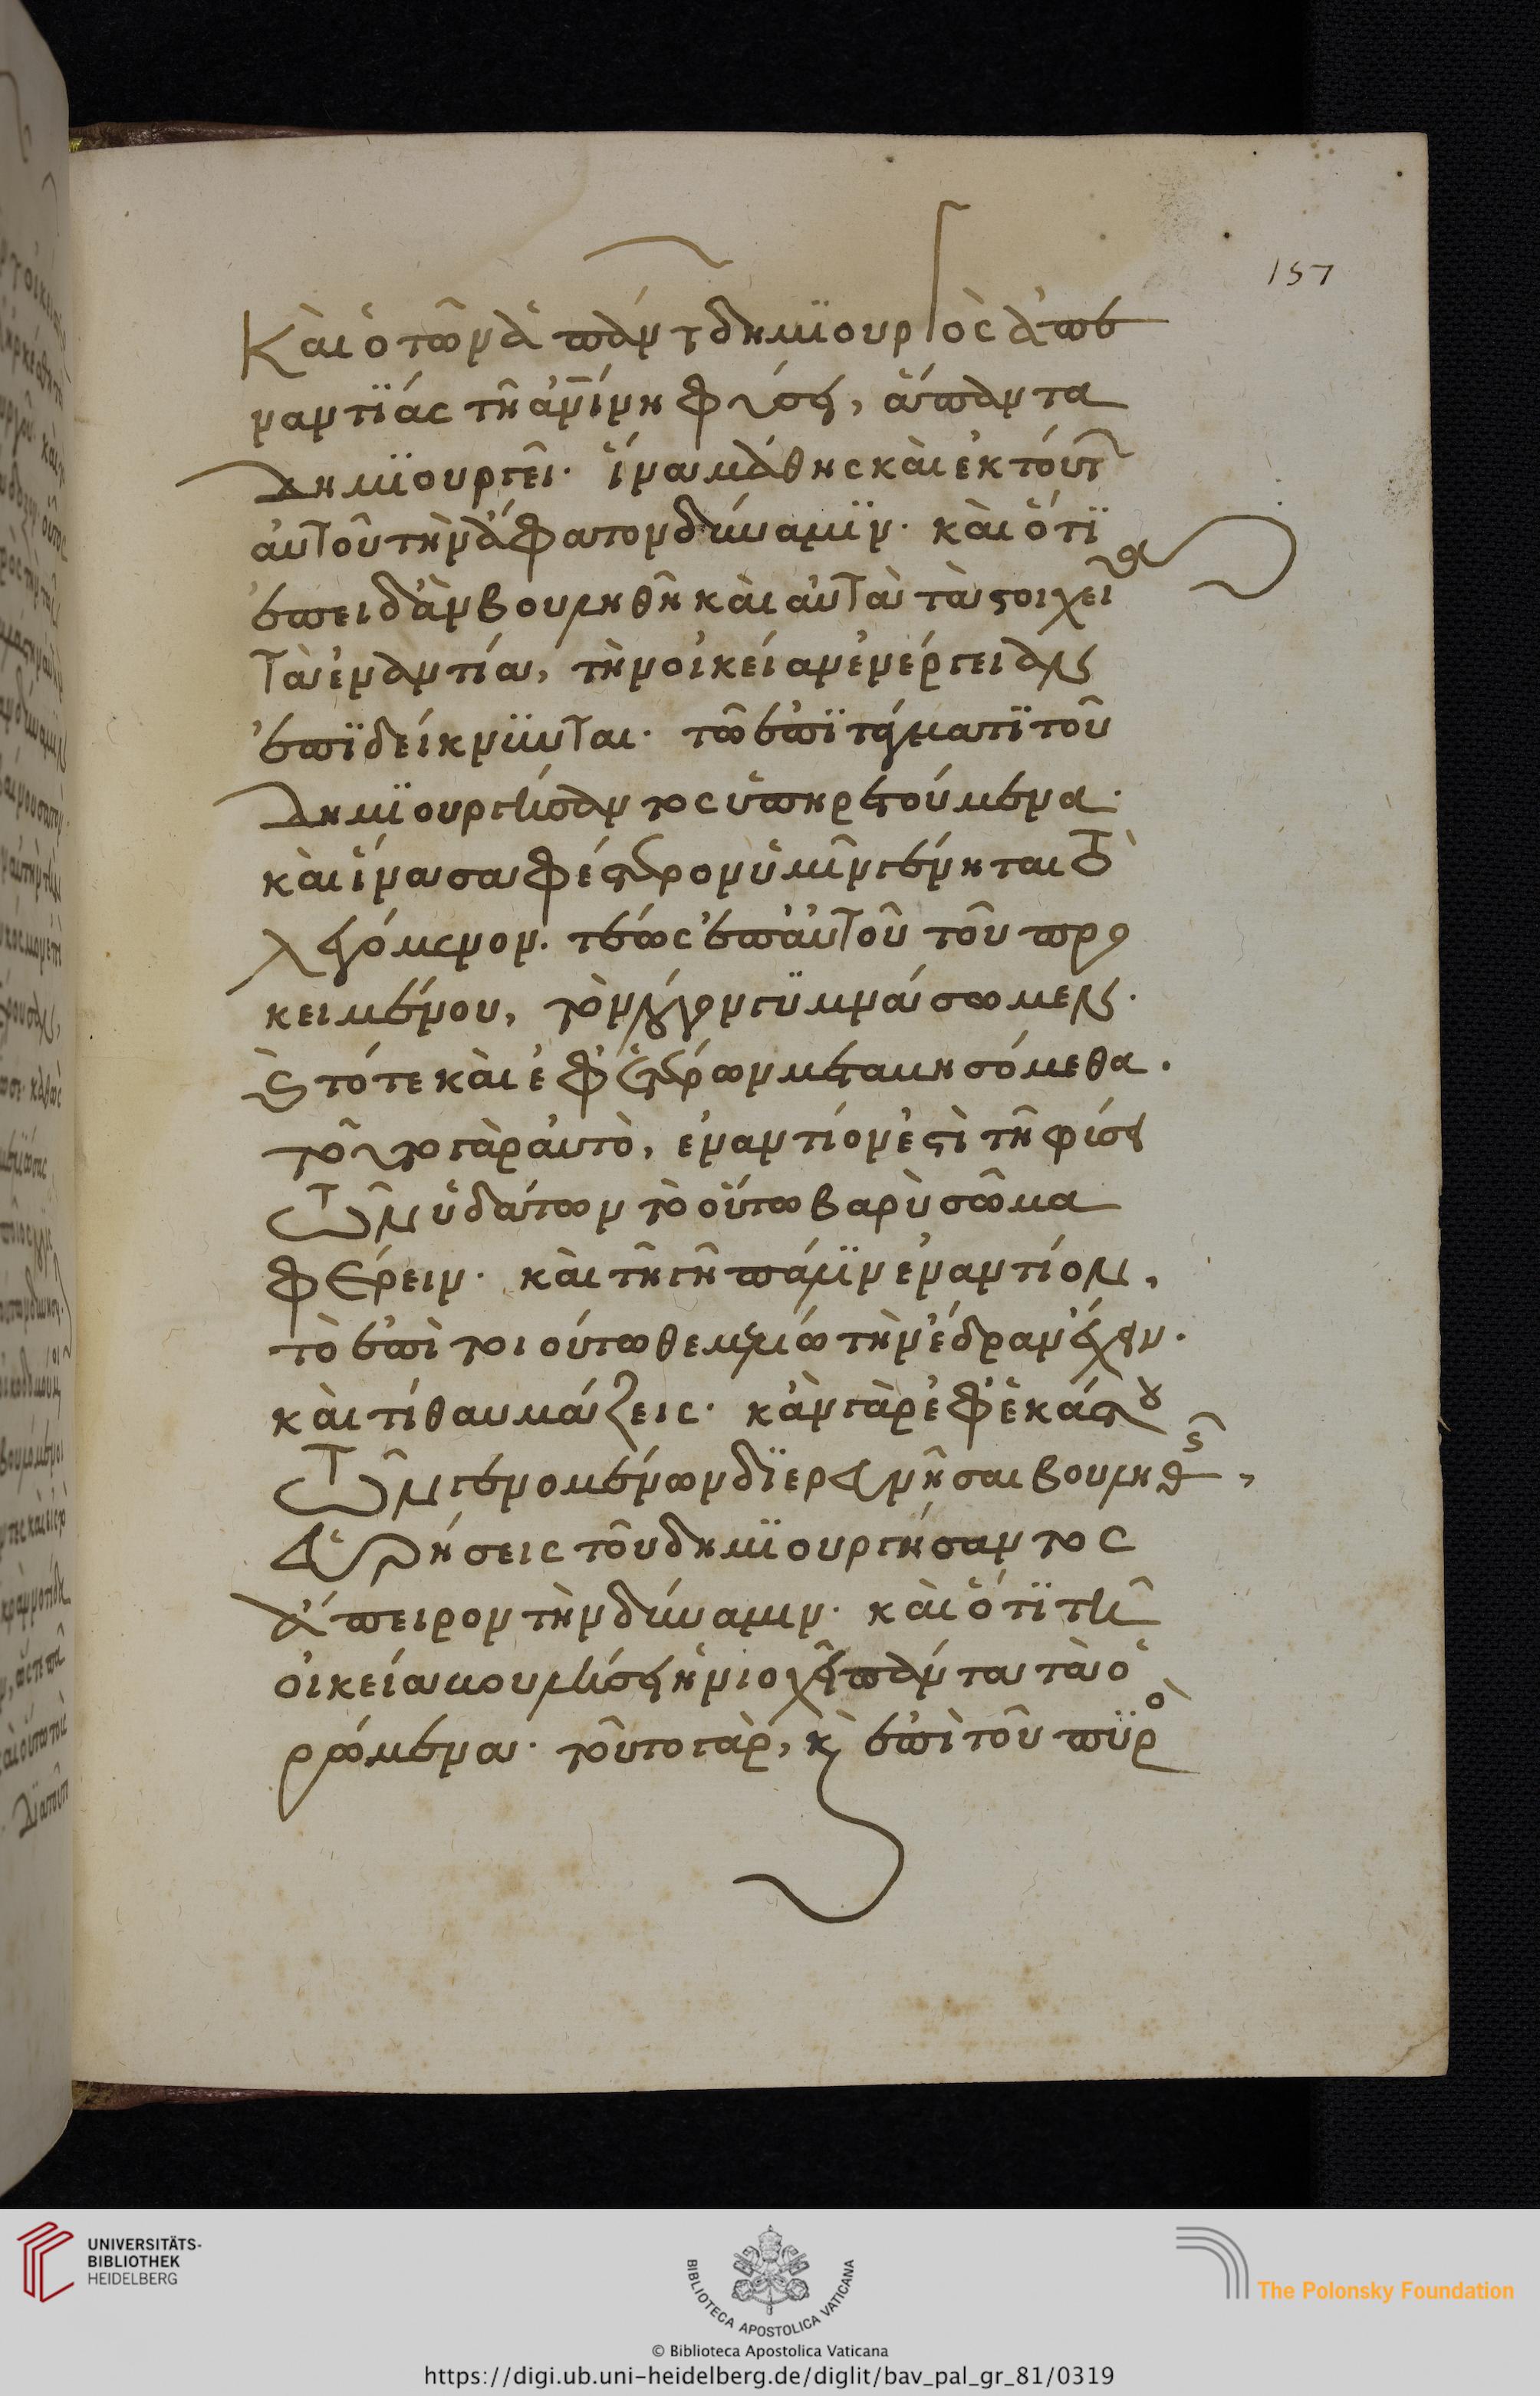 157
Καὶ ὁ τῶν ἁπάντ δημϊουργὸς ἀπε
ναντίας τῆ ἀν̅ίνη φύσει, ἅπαντα
δημϊουργεῖ· ἵνα μάθης καὶ ἐκ τούτ
αὐτοῦ τὴν ἄφατον δύναμϊν· καὶ ὅτϊ
ἐπειδὰν βουληθῆ καὶ αὐτὰ τὰ στοιχεῖα
τὰ ἐναντία, τὴν οἰκείαν ἐνέργειαν
ἐπϊδείκνϋνται· τῶ ἐπϊτάγματϊ τοῦ
δημϊουργήσαντος ὑπηρετούμενα·
καὶ ἵνα σαφέστερον ὑμῖν γένηται τὸ
λεγόμενον. τέως ἐπ' αὐτοῦ τοῦ προ
κειμένου, τὸν λόγον γϋμνάσωμεν.
κ τότε καὶ ἐφ' ἑτέρων μεταβησόμεθα.
τοῦτο γὰρ αὐτὸ, ἐναντίον ἐστὶ τῆ φύσει
τῶν ὑδάτων τὸ οὕτω βαρὺ σῶμα
φέρειν· καὶ τῆ γῆ πάλϊν ἐναντίον,
τὸ ἐπὶ τοιούτω θεμελίω τὴν ἕδραν ἔχειν.
καὶ τί θαυμάζεις· κἂν γὰρ ἐφ' ἑκάστου
τῶν γενομένων δϊερευνῆσαι βουληθῆς,
εὑρήσεις τοῦ δημϊουργήσαντος
ἄπειρον τὴν δύναμιν· καὶ ὅτϊ τῆ
οἰκεία βουλήσει ἡνιοχεῖ πάντα τὰ ὁ
ρώμενα· τοῦτο γὰρ, κ ἐπὶ τοῦ πϋρὸ
UNIVERSITÄTS-
BIBLIOTHEK
HEIDELBERG
BIBLIOTECA APOSTOLICA VATICANA
The Polonsky Foundation
© Biblioteca Apostolica Vaticana
https://digi.ub.uni-heidelberg.de/diglit/bav_pal_gr_81/0319